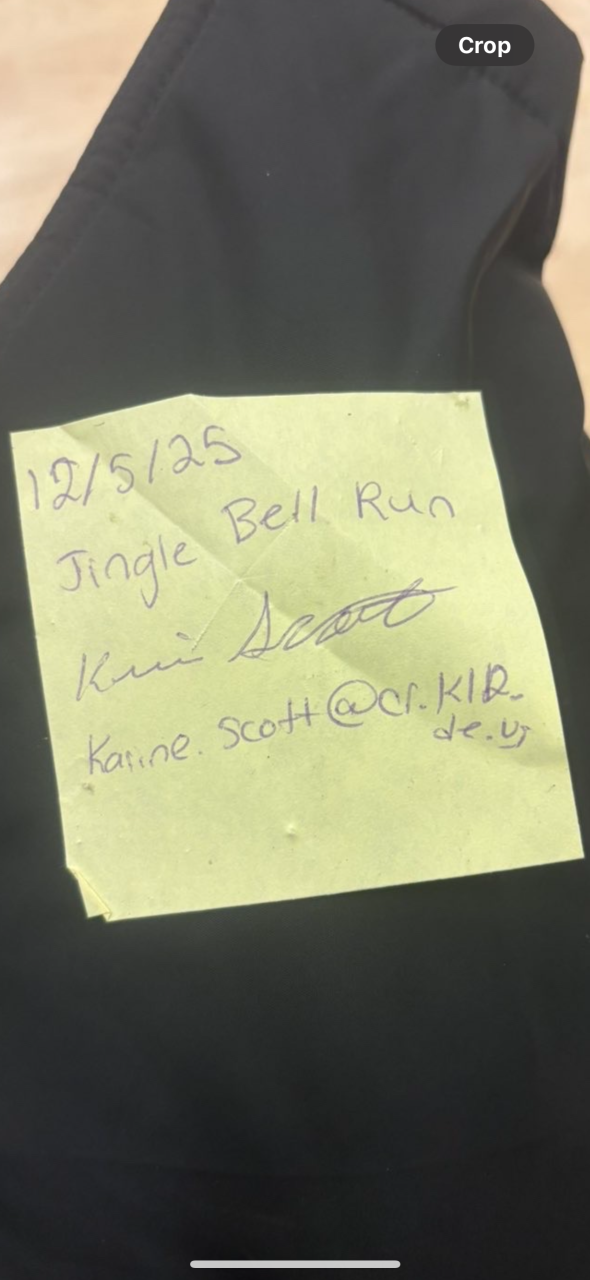 Crop
12/5/25
Jingle Bell Run
Scott
Karine.Scott@cr.K12.
de.us